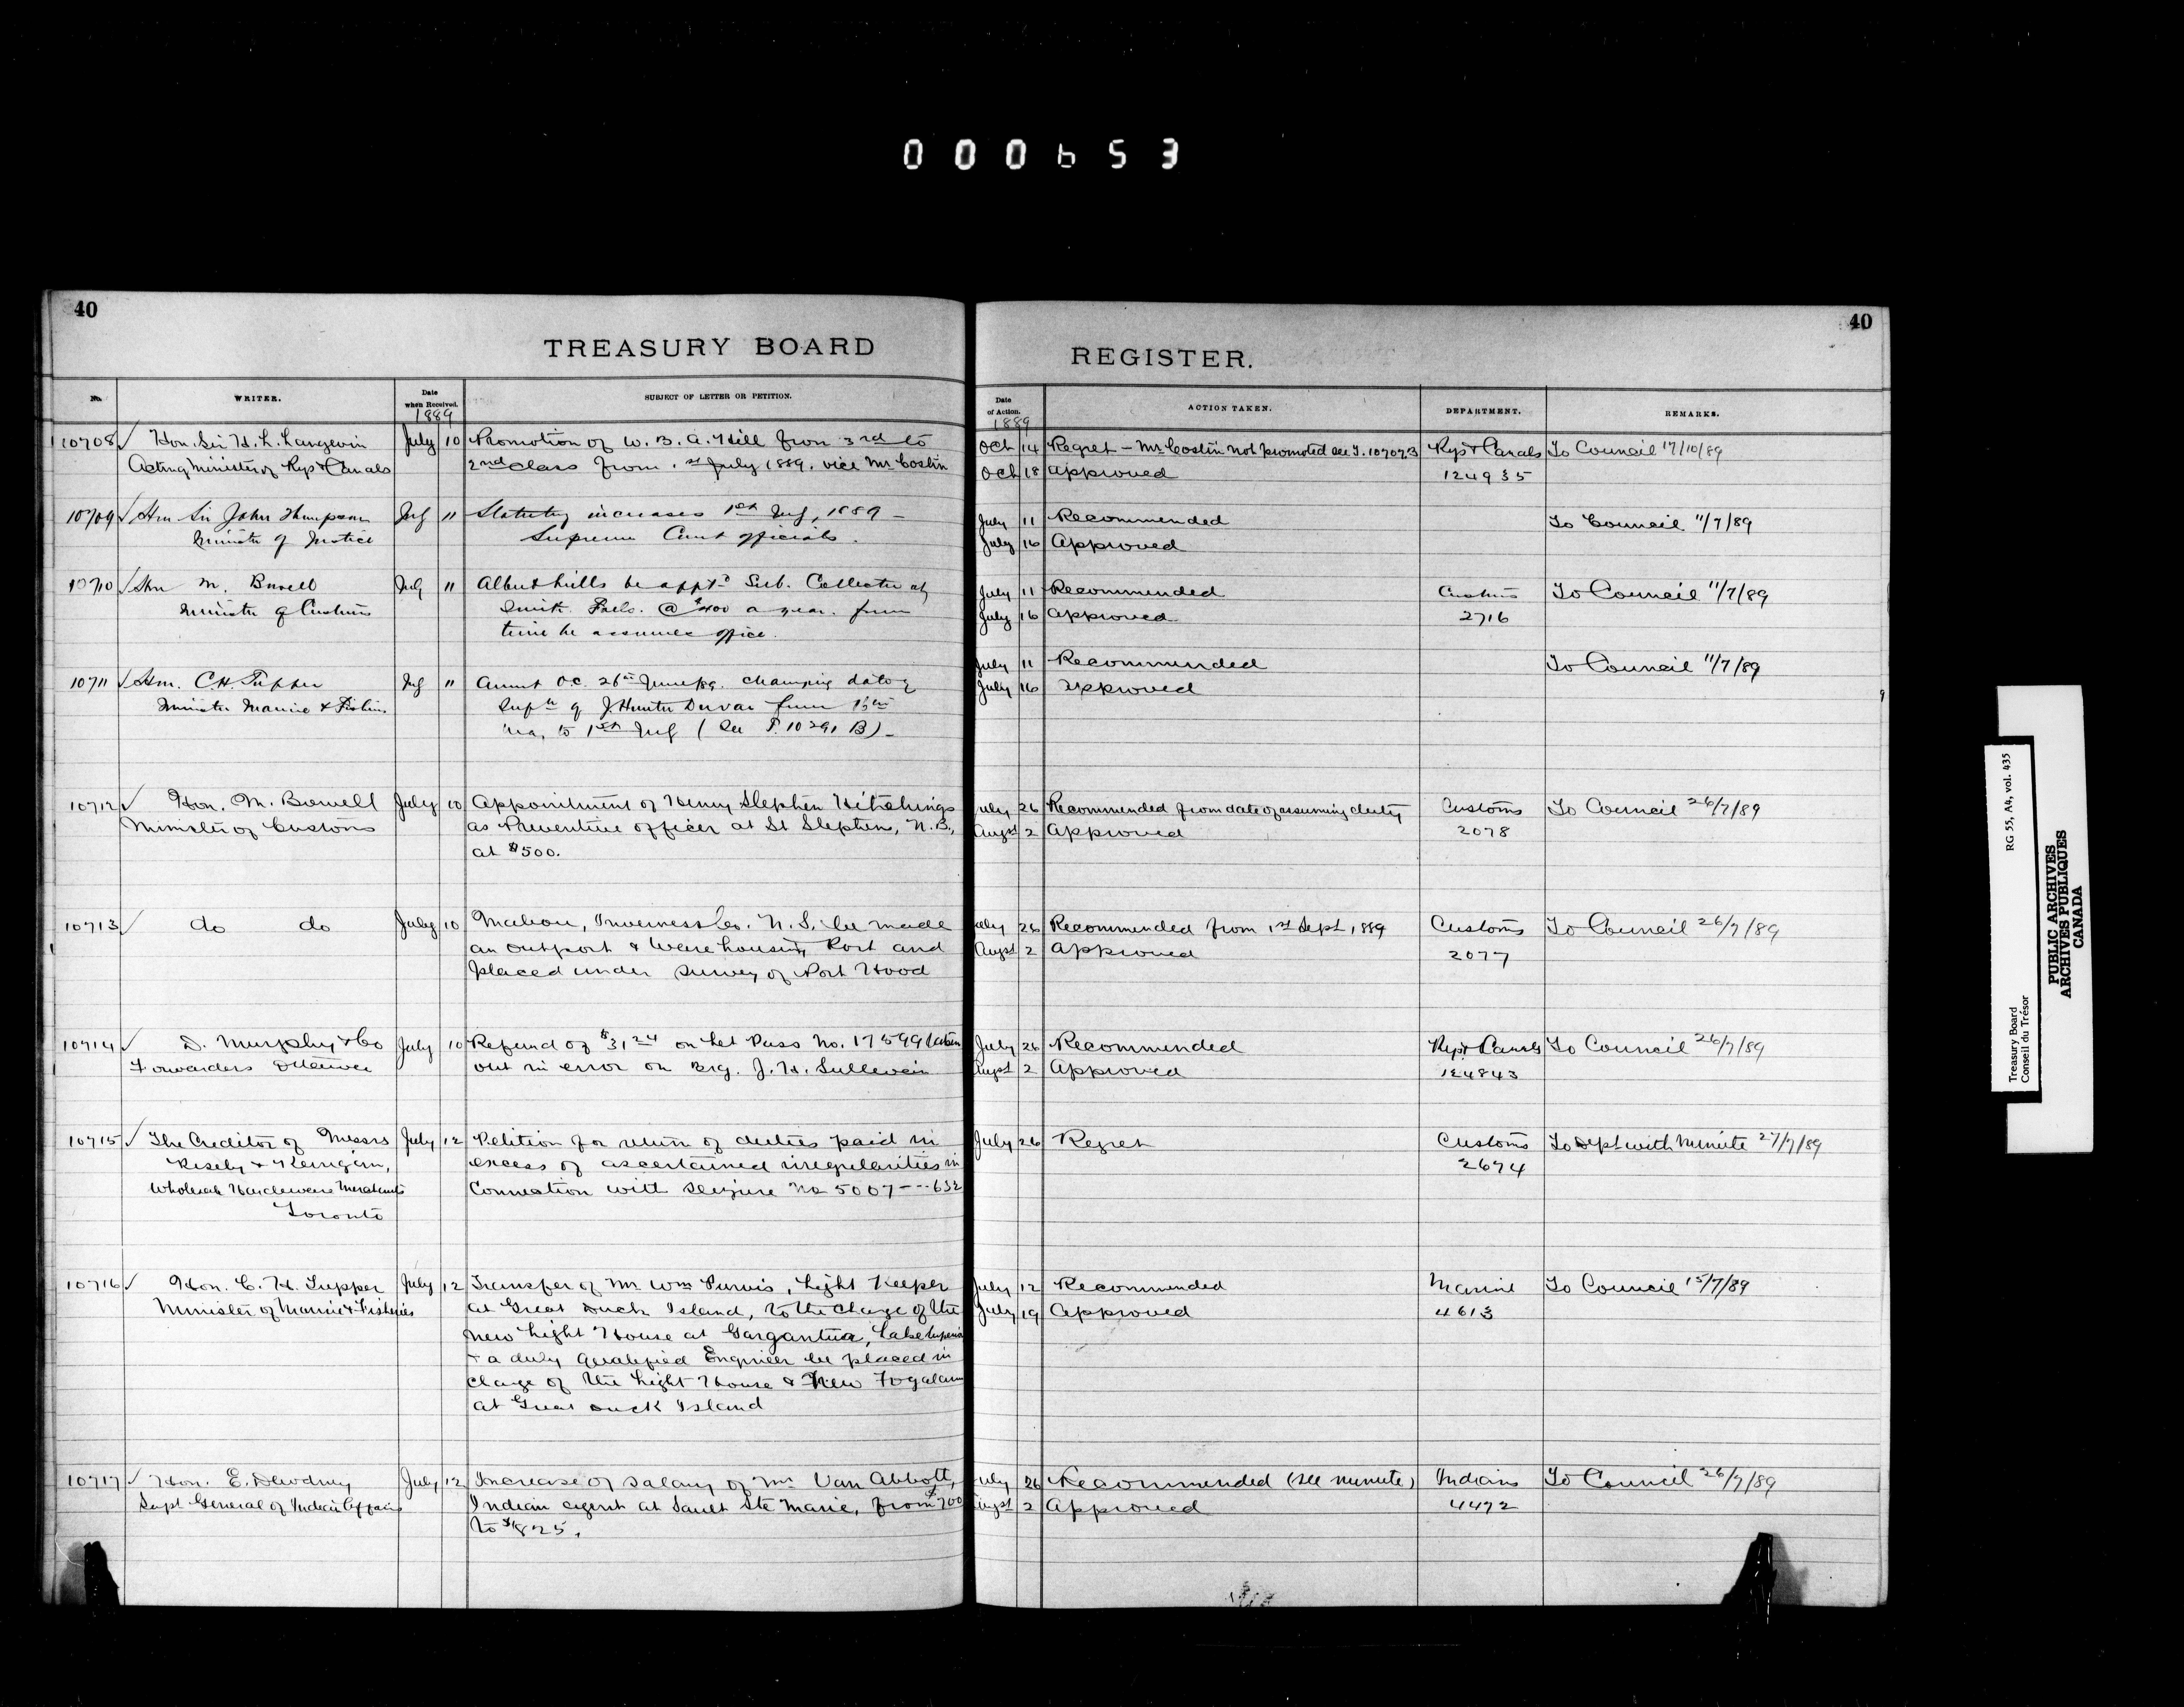 000653
40
TREASURY BOARD
No.
WRITER.
Date when Received.
1889
SUBJECT OF LETTER OR PETITION.
10708 Hon. Sir H. L. Langevin July 10 Promotion of W. B. A. Hill from 3rd to
Acting Minister of Rys & Canals 2nd class from 1st July 1889. vice Mr Costin
10709 Hon Sir John Thompson July 11 Statutory increases 1st July, 1889 –
Minister of Justice Supreme Court officials.
10710 Hon M. Bowell July 11 Albert Mills be appt'd Sub. Collector at
Minister of Customs Smith Falls. @ $400 a year. from
time he assumes office.
10711 Hon. C.H. Tupper July 11 Amend O.C. 26th June/89. changing date of
Minister Marine & Fisheries Supn of J. Hunter Duvar from
to 1st July (See T. 10291 B) –
10712 Hon. M. Bowell July 10 Appointment of Henry Stephen Hitchings
Minister of Customs as Preventive officer at St Stephens, N.B.,
at $500.
10713 do do July 10 Mabou, Inverness Co. N.S. be made
an outport & Warehousing Port and
placed under survey of Port Hood
10714 D. Murphy & Co July 10 Refund of $31 24 on Let Pass No. 17599 taken
Forwarders Ottawa out in error on Brg. J. H. Sullivan
10715 The Creditor of Messrs July 12 Petition for return of duties paid in
Risely & Kerrigan, excess of ascertained irregularities in
Wholesale Hardware Merchants connection with seizure No 5007---632
Toronto
10716 Hon. C. H. Tupper July 12 Transfer of Mr Wm Purvis, Light Keeper
Minister of Marine & Fisheries at Great Duck Island, to the charge of the
new Light House at Gargantua, Lake Superior
& a duly qualified Engineer be placed in
charge of the Light House & New Fogalarm
at Great Duck Island
10717 Hon. E. Dewdney July 12 Increase of salary of Mr Van Abbott,
Supt General of Indian Affairs Indian agent at Sault Ste Marie, from $700
to $825.
40
REGISTER.
Date of Action.
1889
ACTION TAKEN.
DEPARTMENT.
REMARKS.
Oct 14 Regret – Mr Costin not promoted see T. 107023 Rys & Canals To Council 17/10/89
Oct 18 Approved 124935
July 11 Recommended To Council 11/7/89
July 16 Approved
July 11 Recommended Customs To Council 11/7/89
July 16 Approved 2716
July 11 Recommended To Council 11/7/89
July 16 Approved
July 26 Recommended from date of assuming duty Customs To Council 26/7/89
Augst 2 Approved 2078
July 26 Recommended from 1st Sept, 1889 Customs To Council 26/7/89
Augst 2 Approved 2077
July 26 Recommended Rys & Canals To Council 26/7/89
Augst 2 Approved 124843
July 26 Regret Customs To Dept with Minute 27/7/89
2674
July 12 Recommended Marine To Council 15/7/89
July 19 Approved 4613
July 26 Recommended (see minute) Indians To Council 26/7/89
Augst 2 Approved 4472
Treasury Board RG 55, A4, vol. 435
Conseil du Trésor
PUBLIC ARCHIVES
ARCHIVES PUBLIQUES
CANADA